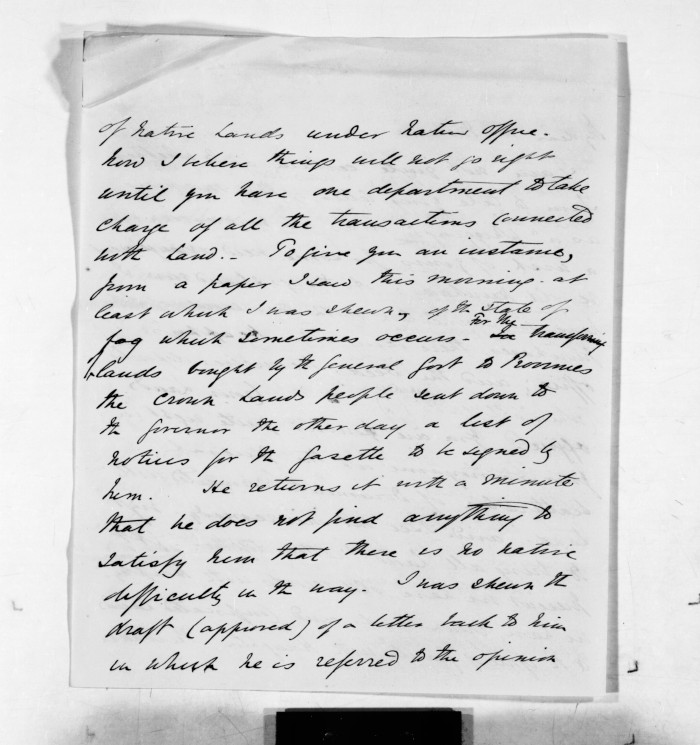 of native Lands under native office.
now I believe things will not go right
until you have one department to take
charge of all the transactions connected
with Land. - To give you an instance,
from a paper I saw this morning - at
least which I was shewn, of the state of
fog which sometimes occurs - For the transferring
lands bought by the General Govt to Provinces
the Crown Lands people sent down to
the Governor the other day a list of
notices for the Gazette to be signed by
him. He returns it with a minute
that he does not find anything to
satisfy him that there is no native
difficulty in the way. I was shewn the
draft (approved) of a letter back to him
in which he is referred to the opinion